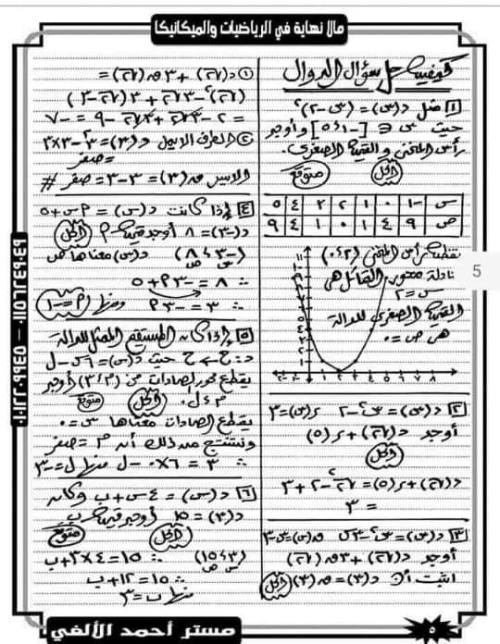 مالا نهاية في الرياضيات والميكانيكا
كيفية حل سؤال الدوال
[١] مثل د(س) = (س-٢)²
حيث س ∈ [-١،٥] وأوجد
رأس المنحنى والقيمة الصغرى.
الحل متوقع
س -١ ٠ ١ ٢ ٣ ٤ ٥
ص ٩ ٤ ١ ٠ ١ ٤ ٩
نقطة رأس المنحنى (٢،٠)
معادلة محور التماثل هى
س = ٢
القيمة الصغرى للدالة
هى ص = ٠
[٢] د(س) = س² - ٢ ر(س) = ٣
أوجد د(√٢) + ر(٥)
الحل
= ٣
[٣]
أوجد د(√٢) + ٣ م(√٢)
اثبت أن د(٣) = م(٣) الحل
① د(√٢) + ٣ م(√٢) =
= ٢ - ٣√٢ + ٣√٢ - ٩ = -٧
② الطرف الأيمن د(٣) = ٣² - ٣×٣
= صفر
الأيسر م(٣) = ٣ - ٣ = صفر #
[٤] إذا كانت د(س) = م س + ٥
د(-٣) = ٨ أوجد قيمة م الحل
(-٣، ٨) د(س) معناها ص
س ص
∴ ٨ = -٣م + ٥
∴ ٣ = -٣م ومنها م = -١
[٥] إذا كان المستقيم الممثل للدالة
د: ح ← ح حيث د(س) = ٦س - ل
يقطع محور الصادات فى (م، ٣) أوجد
م، ل. الحل متوقع
يقطع الصادات معناها س = ٠
ونستنتج من ذلك أن م = صفر
∴ ٣ = ٦×٠ - ل منها ل = -٣
[٦] د(س) = ٤س + ب وكان
د(٣) = ١٥ أوجد قيمة ب
الحل متوقع
(٣، ١٥) ∴ ١٥ = ٤×٣ + ب
س ص
∴ ١٥ = ١٢ + ب
منها ب = ٣
مستر أحمد الألفي
٥
5